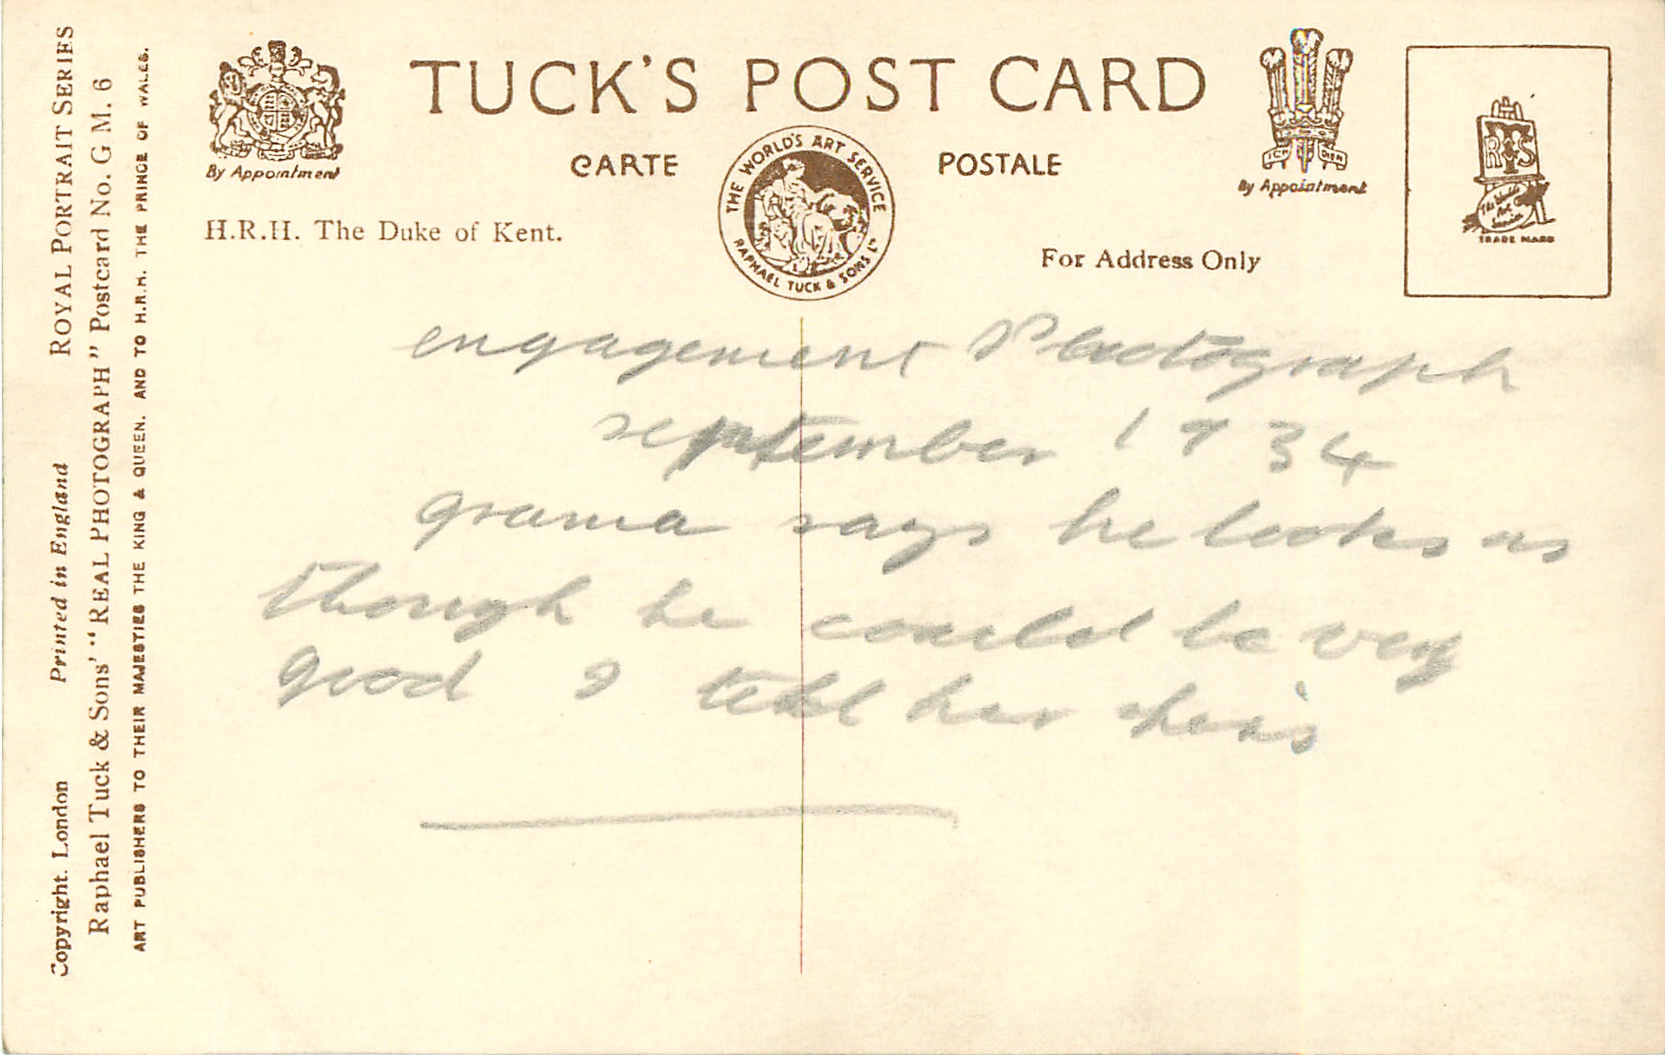 TUCK'S POST CARD
CARTE POSTALE
By Appointment
By Appointment
THE WORLD'S ART SERVICE
RAPHAEL TUCK & SONS LTD
H.R.H. The Duke of Kent.
For Address Only
ICH DIEN
R T S
TRADE MARK
engagement Photograph
september 1934
grama says he looks as
though he could be very
good I tell her he is
ROYAL PORTRAIT SERIES
Printed in England
Copyright. London
Raphael Tuck & Sons' "REAL PHOTOGRAPH" Postcard No. G M. 6
ART PUBLISHERS TO THEIR MAJESTIES THE KING & QUEEN. AND TO H.R.H. THE PRINCE OF WALES.